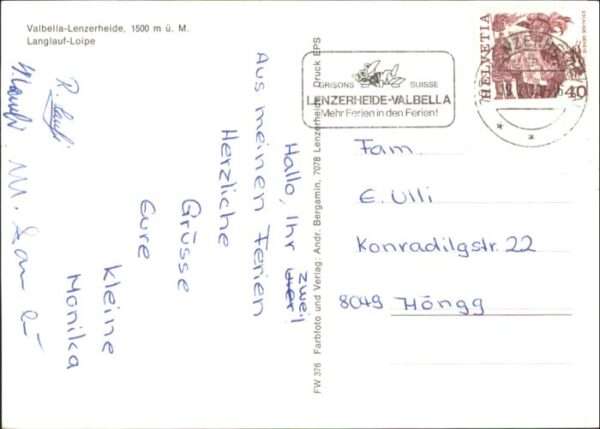 Valbella-Lenzerheide, 1500 m ü. M.
Langlauf-Loipe
Hallo, Ihr vier zwei!
Aus meinen Ferien
Herzliche
Grüsse
Eure
kleine
Monika
FW 376 Farbfoto und Verlag: Andr. Bergamin, 7078 Lenzerheide Druck EPS
GRISONS SUISSE
LENZERHEIDE-VALBELLA
Mehr Ferien in den Ferien!
HELVETIA
40
Fam.
E. Ulli
Konradilgstr. 22
8049 Höngg